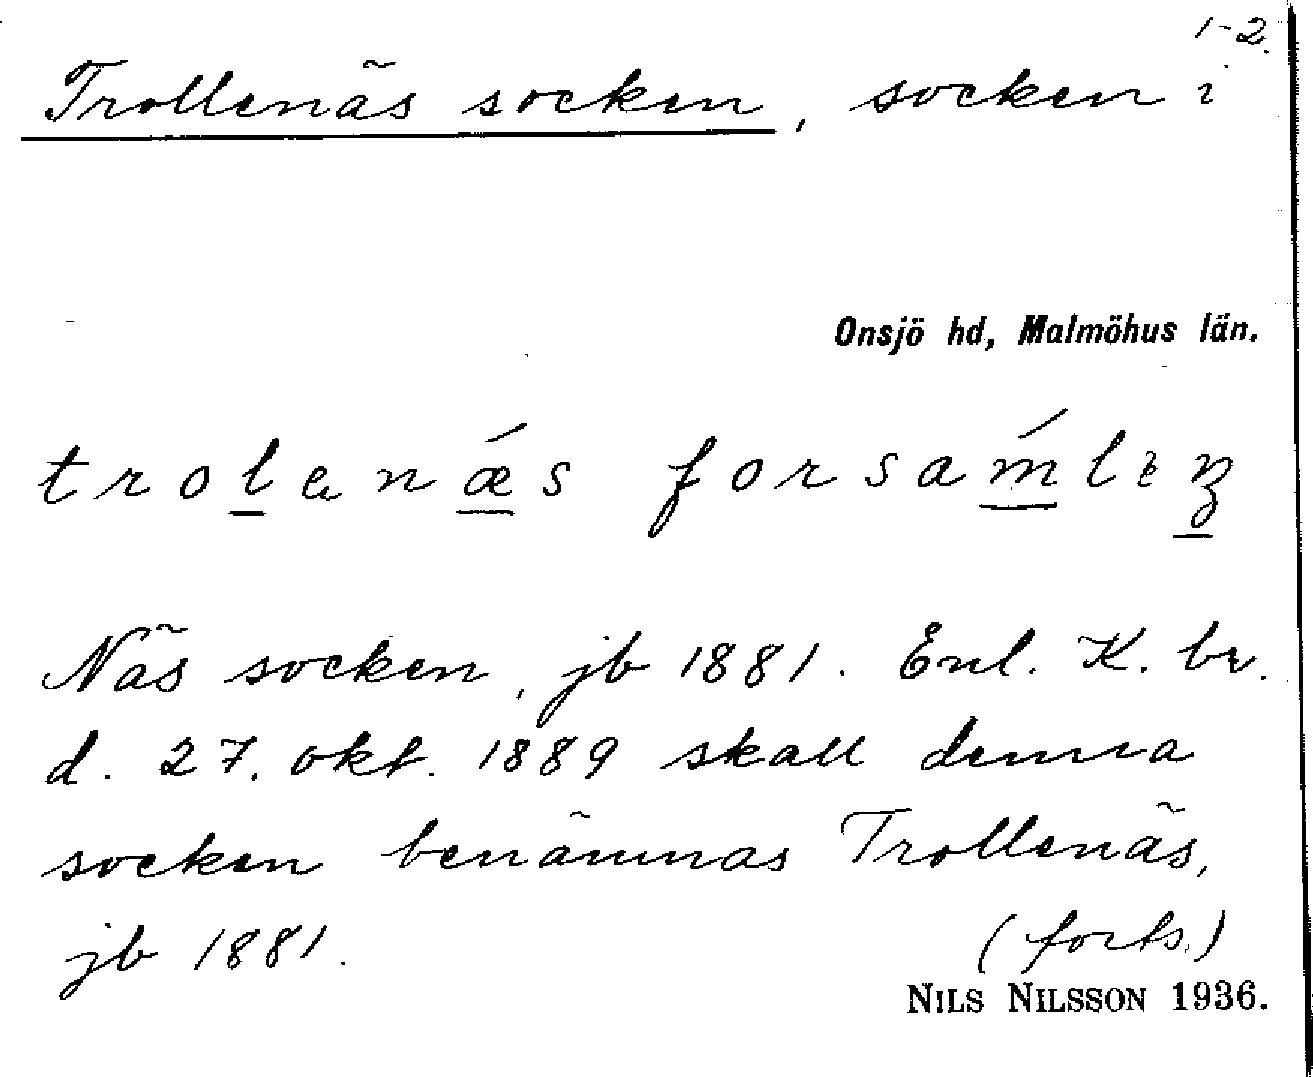 1-2.
Trollenäs socken, socken i
Onsjö hd, Malmöhus län.
trolenǽs forsaḿliŋ
Näs socken, jb 1881. Enl. K. br.
d. 27. okt. 1889 skall denna
socken benämnas Trollenäs,
jb 1881.
(forts.)
NILS NILSSON 1936.